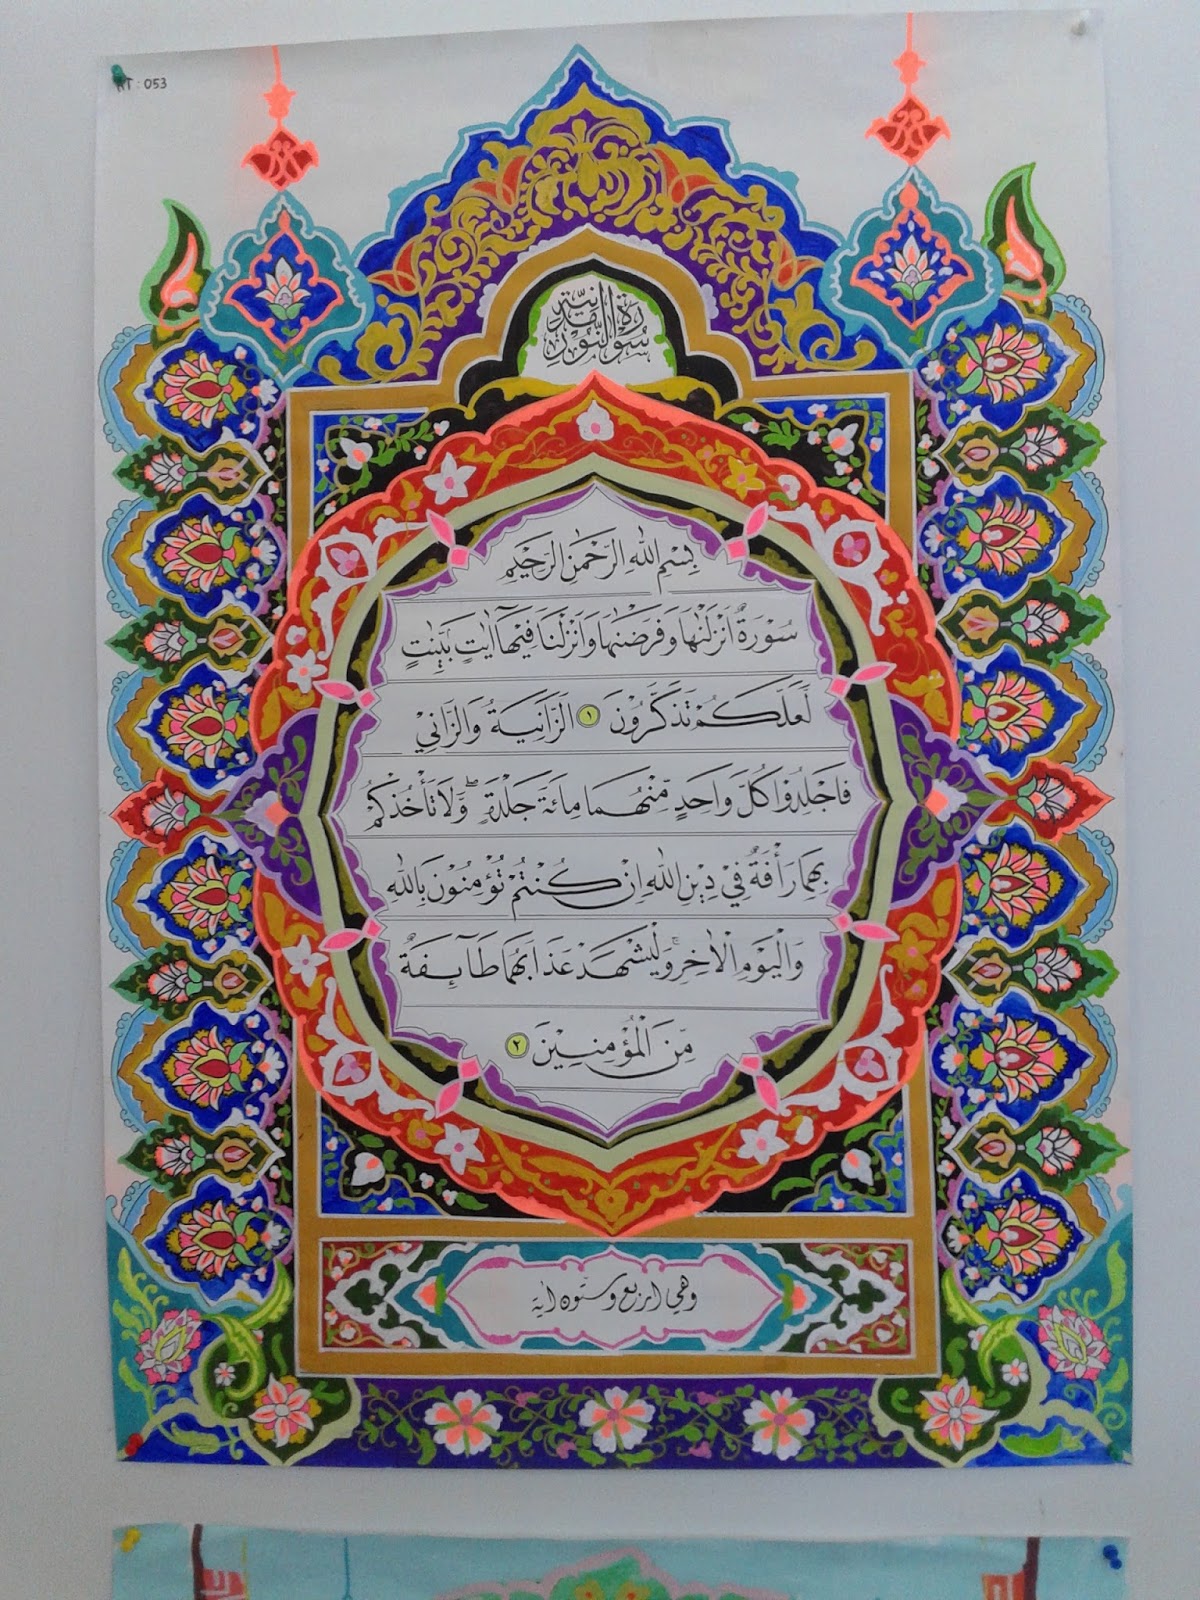 HT : 053
سورة النور مدنية
بِسْمِ اللهِ الرَّحْمٰنِ الرَّحِيْمِ
سُوْرَةٌ اَنْزَلْنٰهَا وَفَرَضْنٰهَا وَاَنْزَلْنَا فِيْهَآ اٰيٰتٍ بَيِّنٰتٍ
لَّعَلَّكُمْ تَذَكَّرُوْنَ ١ اَلزَّانِيَةُ وَالزَّانِيْ
فَاجْلِدُوْا كُلَّ وَاحِدٍ مِّنْهُمَا مِائَةَ جَلْدَةٍ ۖ وَّلَا تَأْخُذْكُمْ
بِهِمَا رَأْفَةٌ فِيْ دِيْنِ اللهِ اِنْ كُنْتُمْ تُؤْمِنُوْنَ بِاللهِ
وَالْيَوْمِ الْاٰخِرِۚ وَلْيَشْهَدْ عَذَابَهُمَا طَاۤىِٕفَةٌ
مِّنَ الْمُؤْمِنِيْنَ ٢
وهي اربع وستون اية